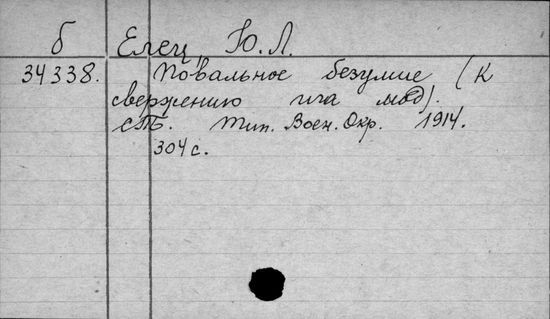 б Елец, Ю. Л.
34338. Повальное безумие (К
свержению ига мод).
СПБ. Тип. Воен. Окр. 1914.
304 с.